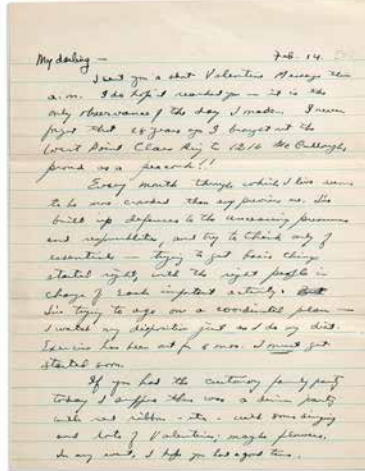 My darling — Feb. 14.
I sent you a short Valentine Message this
a.m. I do hope it reached you — it is the
only observance of the day I made. I never
forget that 28 years ago I brought out the
West Point Class Ring to 1216 McCullough,
proud as a peacock!!
Every month through which I live seems
to be more crowded than any previous one. I've
built up defenses to the unceasing pressures
and responsibilities, and try to think only of
essentials — trying to get basic things
started right, with the right people in
charge of each important activity.
I'm trying to age on a coordinated plan —
I watch my disposition just as I do my diet.
Exercise has been out for 8 mos. I must get
started soon.
If you had the customary family party
today I suppose there was a dinner party
with red ribbon - etc - with some singing
and lots of Valentines; maybe flowers.
In any event, I hope you had a good time.